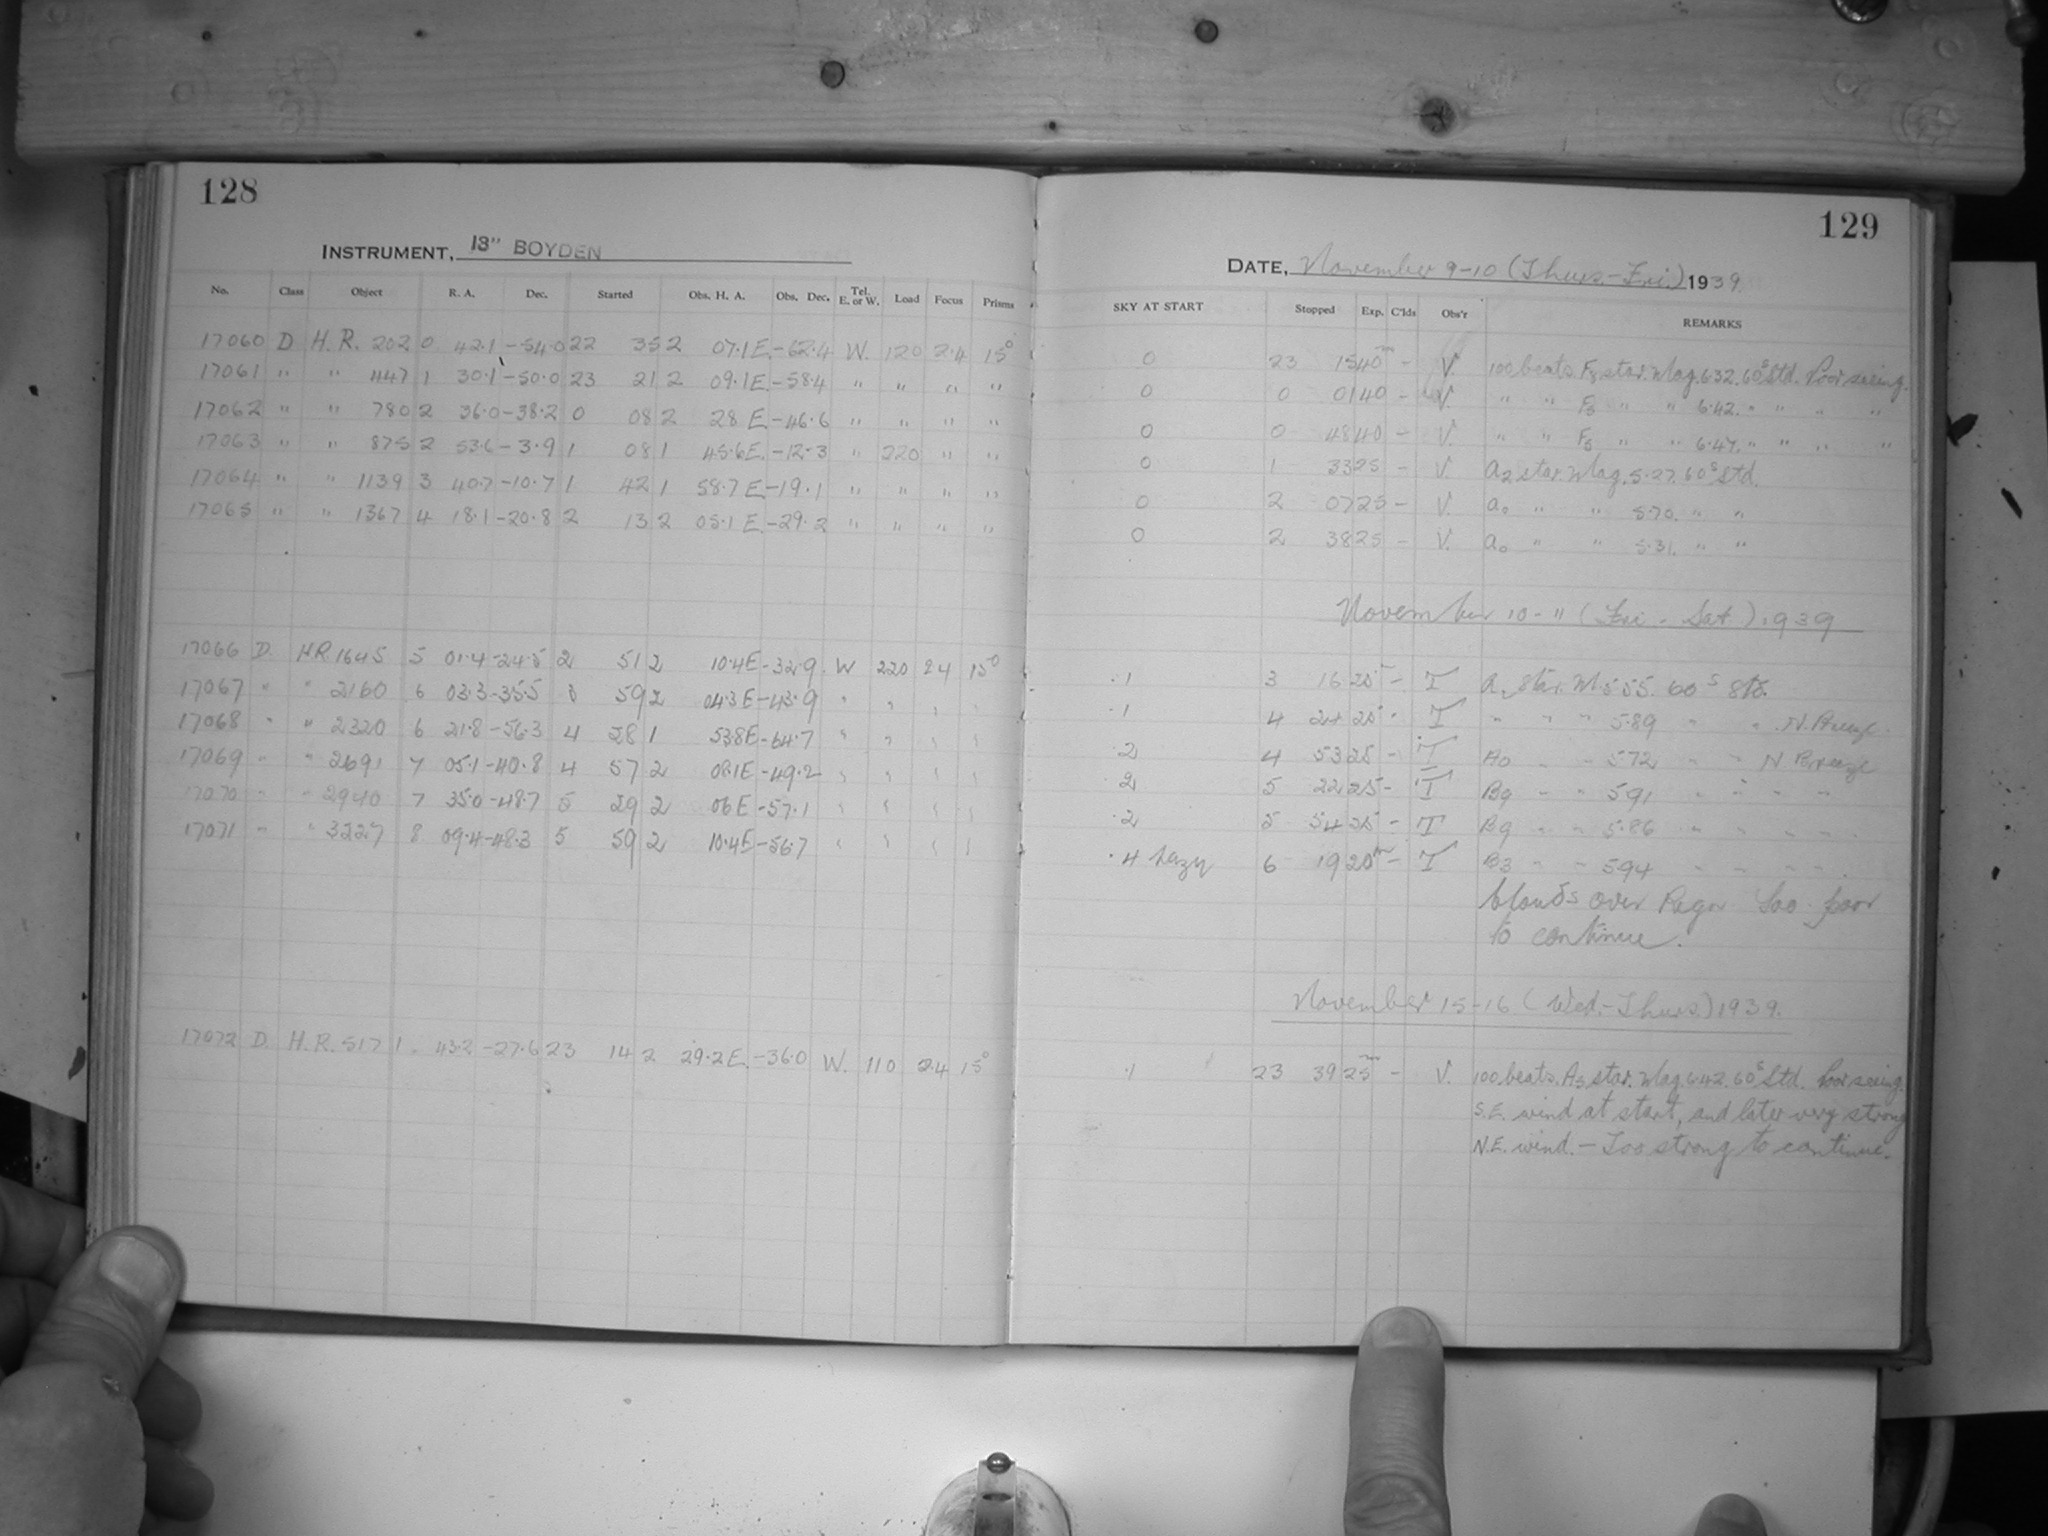 128
INSTRUMENT, 13" BOYDEN
No. Class Object R. A. Dec. Started Obs. H. A. Obs. Dec. Tel. E. or W. Load Focus Prisms
17060 D H.R. 202 0 42.1 -54.0 22 35 2 07.1E -62.4 W. 120 2.4 15°
17061 " " 447 1 30.1 -50.0 23 21 2 09.1E -58.4 " " " "
17062 " " 780 2 36.0 -38.2 0 08 2 28 E -46.6 " " " "
17063 " " 875 2 53.6 -3.9 1 08 1 45.6E. -12.3 " 220 " "
17064 " " 1139 3 40.7 -10.7 1 42 1 58.7E -19.1 " " " "
17065 " " 1367 4 18.1 -20.8 2 13 2 05.1 E. -29.2 " " " "
17066 D. H.R. 1645 5 01.4 -24.5 2 51 2 10.4E -32.9 W 220 24 15°
17067 " " 2160 6 03.3 -35.5 3 59 2 04.3E -43.9 " " " "
17068 " " 2320 6 21.8 -56.3 4 28 1 538E -64.7 " " " "
17069 " " 2691 7 05.1 -40.8 4 57 2 081E -49.2 " " " "
17070 " " 2940 7 35.0 -48.7 5 29 2 06E -57.1 " " " "
17071 " " 3227 8 09.4 -48.3 5 59 2 10.4E -56.7 " " " "
17072 D. H.R. 517 1. 43.2 -27.6 23 14 2 29.2E. -36.0 W. 110 2.4 15°
129
DATE, November 9-10 (Thurs-Fri.) 1939.
SKY AT START Stopped Exp. C'lds Obs'r REMARKS
0 23 15 40m - V. 100 beats. F8 star. Mag. 6.32. 60s Std. Poor seeing.
0 0 01 40 - V. " " F8 " " 6.42. " " " "
0 0 48 40 - V. " " F5 " " 6.47. " " " "
0 1 33 25 - V. A2 star. Mag. 5.27. 60s Std.
0 2 07 25 - V. A0 " " 5.70. " "
0 2 38 25 - V. A0 " " 5.31. " "
November 10-11 (Fri - Sat.) 1939
.1 3 16 25 - T star. M. 5.55. 60s Std.
.1 4 24 25 - T " " " 5.89 " " N. Breeze
.2 4 53 25 - T A0 " " 572 " " N Breeze
.2 5 22 25 - T B9 " " 591 " " " "
.2 5 54 25 - T B9 " " 5.86 " " " "
.4 hazy 6 19 20m - T B3 " " 594 " " " "
Clouds over Too poor
to continue.
November 15-16 (Wed.-Thurs) 1939.
.1 23 39 25m - V. 100 beats. A3 star. Mag. 6.42. 60s Std. Poor seeing.
S.E. wind at start, and later very strong
N.E. wind. - Too strong to continue.